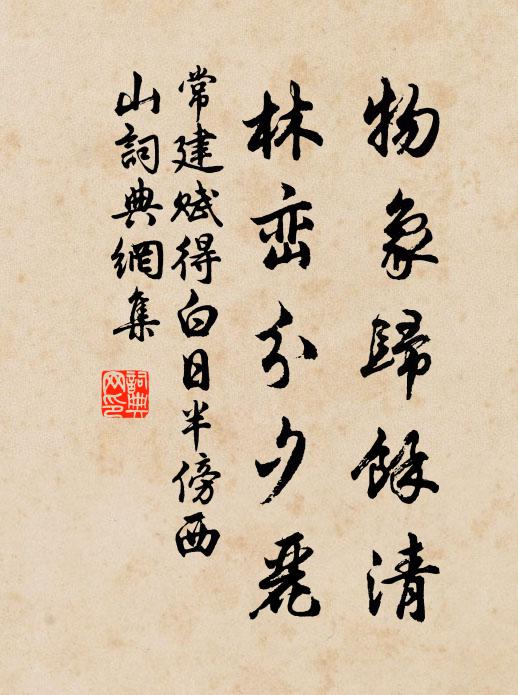 物象歸餘清
林峦分夕麗
常建赋得白日半傍西
山詞典網集
詞典
网印